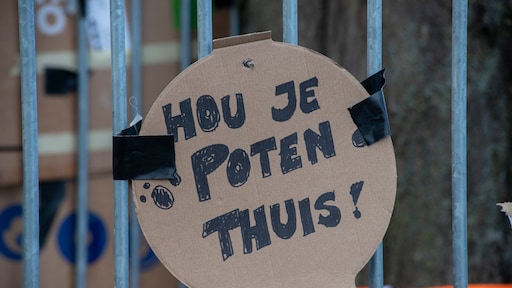 HOU JE
POTEN
THUIS!